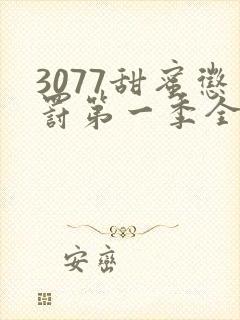 3077甜蜜惩
罚第一季全
安峦